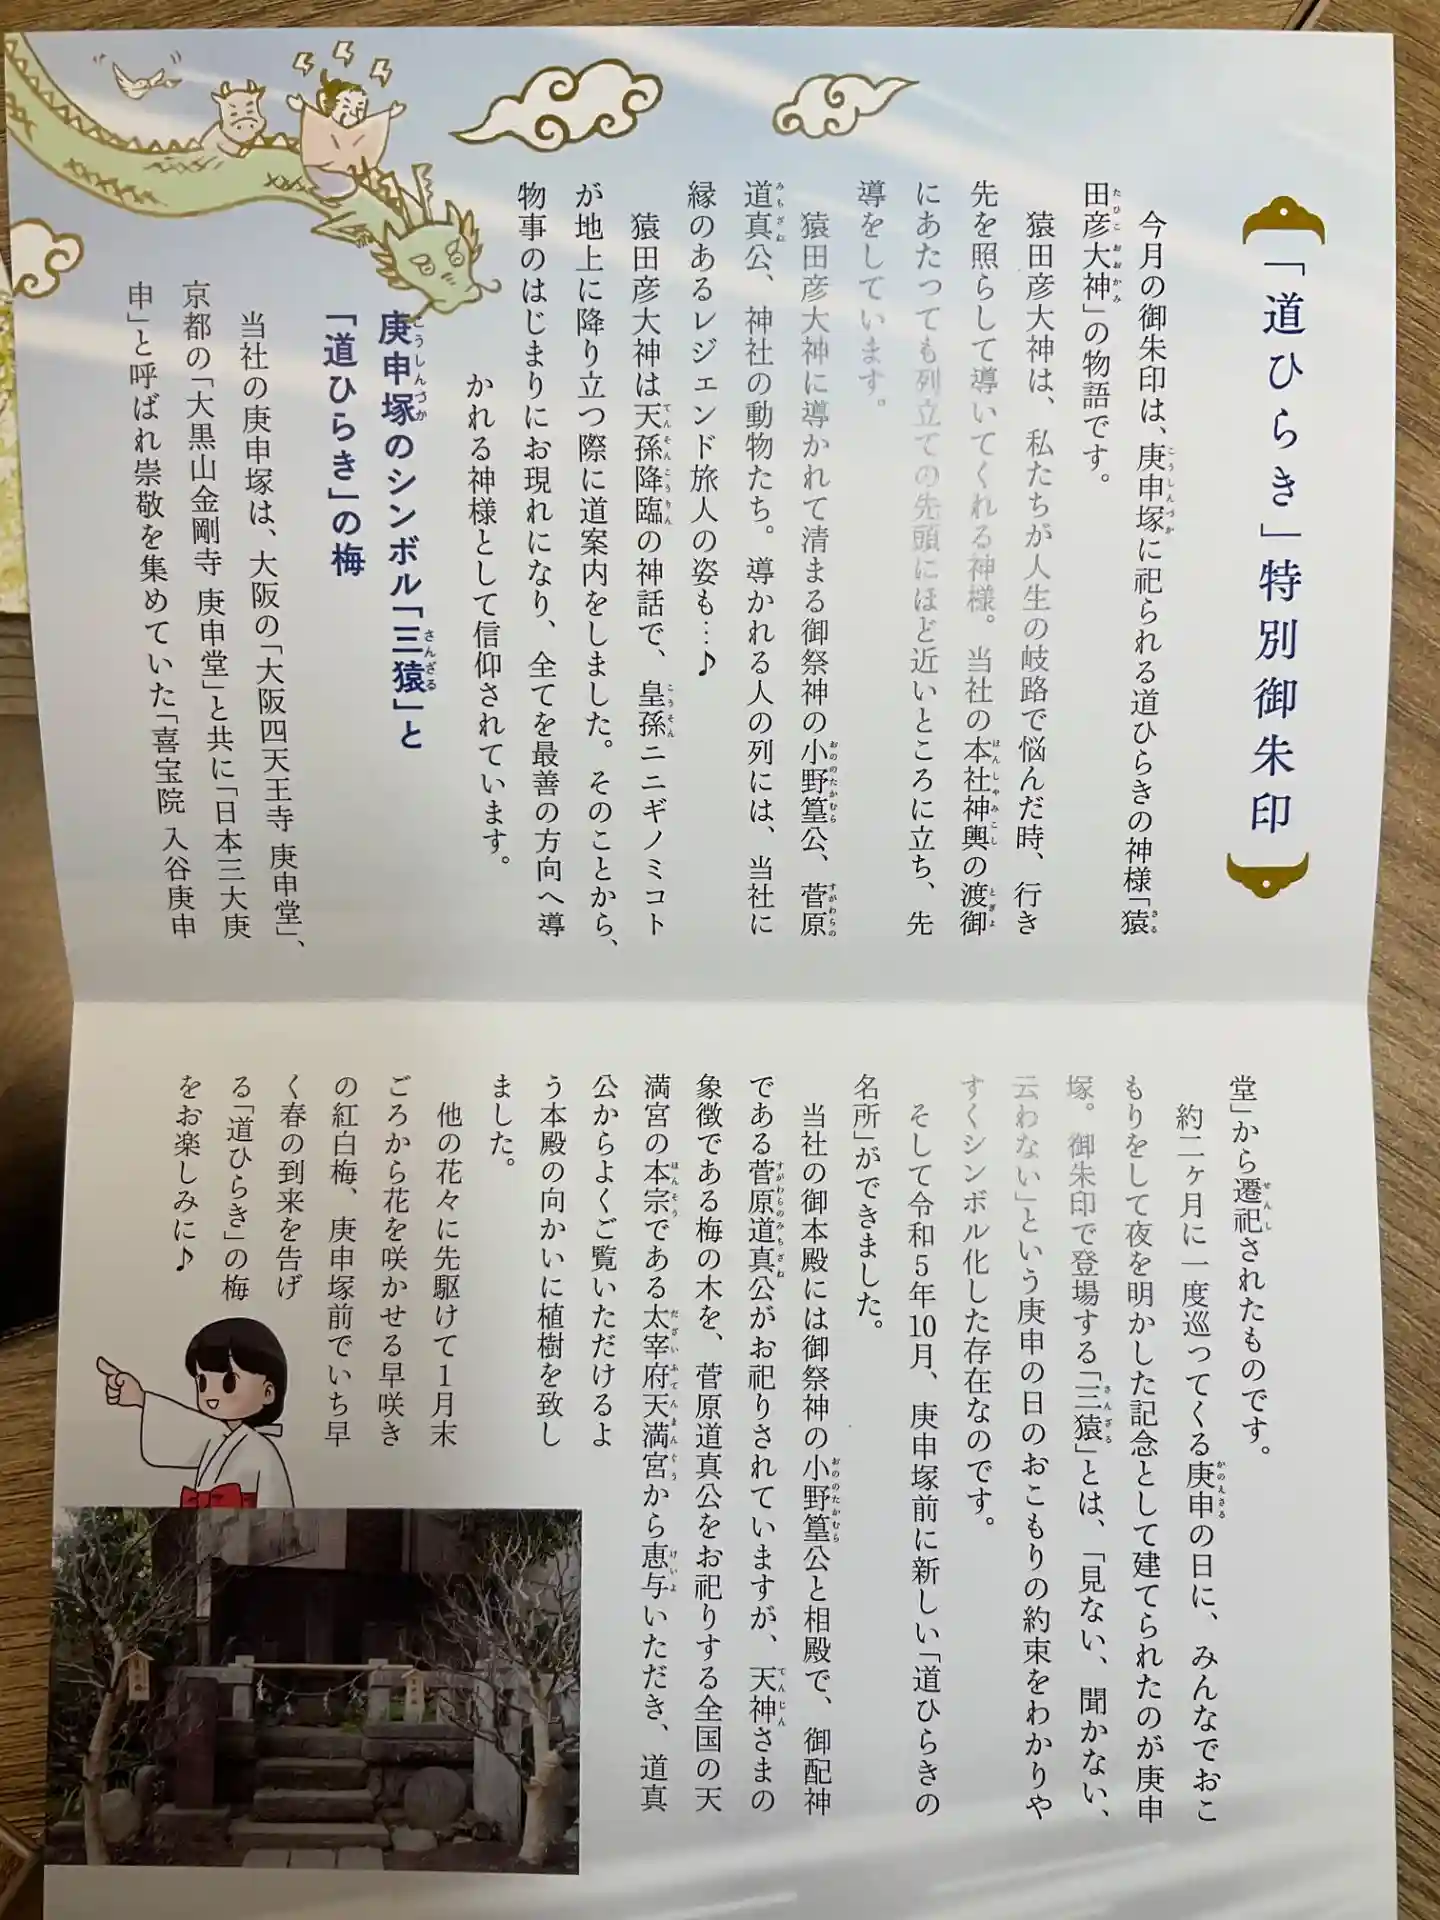 「道ひらき」特別御朱印
今月の御朱印は、庚申塚に祀られる道ひらきの神様「猿
田彦大神」の物語です。
猿田彦大神は、私たちが人生の岐路で悩んだ時、行き
先を照らして導いてくれる神様。当社の本社神輿の渡御
にあたっても列立ての先頭にほど近いところに立ち、先
導をしています。
猿田彦大神に導かれて清まる御祭神の小野篁公、菅原
道真公、神社の動物たち。導かれる人の列には、当社に
縁のあるレジェンド旅人の姿も…♪
猿田彦大神は天孫降臨の神話で、皇孫ニニギノミコト
が地上に降り立つ際に道案内をしました。そのことから、
物事のはじまりにお現れになり、全てを最善の方向へ導
かれる神様として信仰されています。
庚申塚のシンボル「三猿」と
「道ひらき」の梅
当社の庚申塚は、大阪の「大阪四天王寺 庚申堂」、
京都の「大黒山金剛寺 庚申堂」と共に「日本三大庚
申」と呼ばれ崇敬を集めていた「喜宝院 入谷庚申
堂」から遷祀されたものです。
約二ヶ月に一度巡ってくる庚申の日に、みんなでおこ
もりをして夜を明かした記念として建てられたのが庚申
塚。御朱印で登場する「三猿」とは、「見ない、聞かない、
云わない」という庚申の日のおこもりの約束をわかりや
すくシンボル化した存在なのです。
そして令和5年10月、庚申塚前に新しい「道ひらきの
名所」ができました。
当社の御本殿には御祭神の小野篁公と相殿で、御配神
である菅原道真公がお祀りされていますが、天神さまの
象徴である梅の木を、菅原道真公をお祀りする全国の天
満宮の本宗である太宰府天満宮から恵与いただき、道真
公からよくご覧いただけるよ
う本殿の向かいに植樹を致し
ました。
他の花々に先駆けて1月末
ごろから花を咲かせる早咲き
の紅白梅、庚申塚前でいち早
く春の到来を告げ
る「道ひらき」の梅
をお楽しみに♪